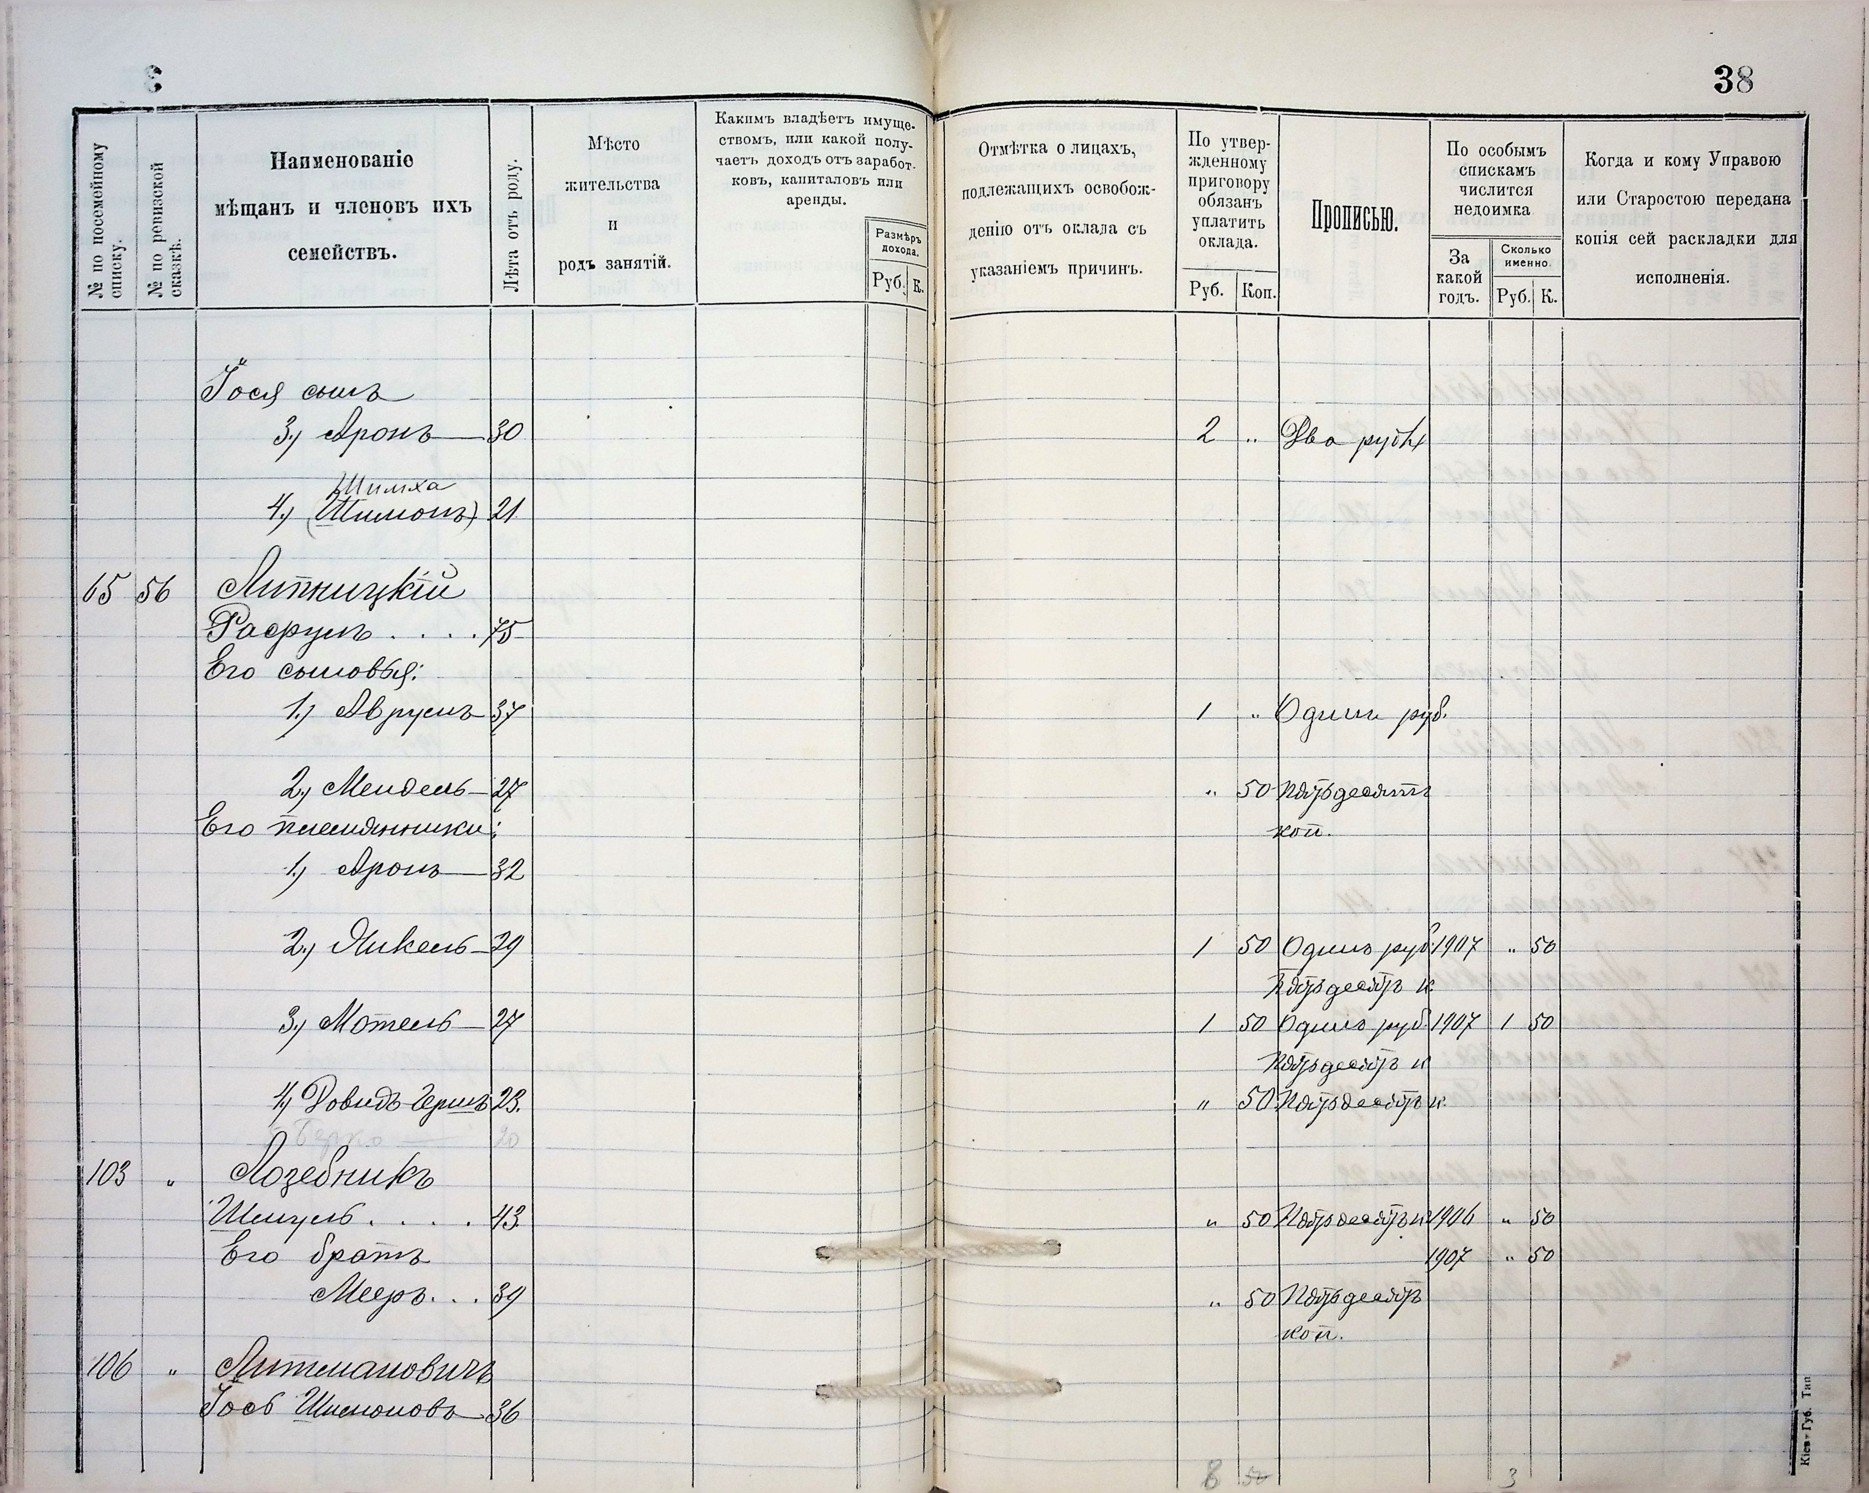 38
№ по посемейному списку.
№ по ревизской сказкѣ.
Наименованіе
мѣщанъ и членовъ ихъ
семействъ.
Лѣта отъ роду.
Мѣсто
жительства
и
родъ занятій.
Какимъ владѣетъ имуще-
ствомъ, или какой полу-
чаетъ доходъ отъ заработ-
ковъ, капиталовъ или
аренды.
Размѣръ
дохода.
Руб. К.
Отмѣтка о лицахъ,
подлежащихъ освобож-
денію отъ оклада съ
указаніемъ причинъ.
По утвер-
жденному
приговору
обязанъ
уплатить
оклада.
Руб. Коп.
Прописью.
По особымъ
спискамъ
числится
недоимка
За
какой
годъ.
Сколько
именно.
Руб. К.
Когда и кому Управою
или Старостою передана
копія сей раскладки для
исполненія.
Іося сынъ
3.) Аронъ 30 2 „ Два рубля
Шимха
4.) (Шимонъ) 21
65 56 Липницкій
Расрулъ . . . . 75
Его сыновья:
1.) Аврумъ 37 1 „ Одинъ руб.
2.) Мендель 27 „ 50 Пятьдесятъ
Его племянники: коп.
1.) Аронъ 32
2.) Янкель 29 1 50 Одинъ руб. 1907 „ 50
Пятьдесятъ к.
3.) Мотель 27 1 50 Одинъ руб. 1907 1 50
Пятьдесятъ к
4.) Довидъ Гершъ 23. „ 50 Пятьдесятъ к.
Берко 20
103 „ Лозебникъ
Шмуль . . . . 43 „ 50 Пятьдесятъ к 1906 „ 50
Его братъ 1907 „ 50
Мееръ . . . 39 „ 50 Пятьдесятъ
коп.
106 „ Литмановичъ
Іось Шимоновъ 36
3
Кіев. Губ. Тип.